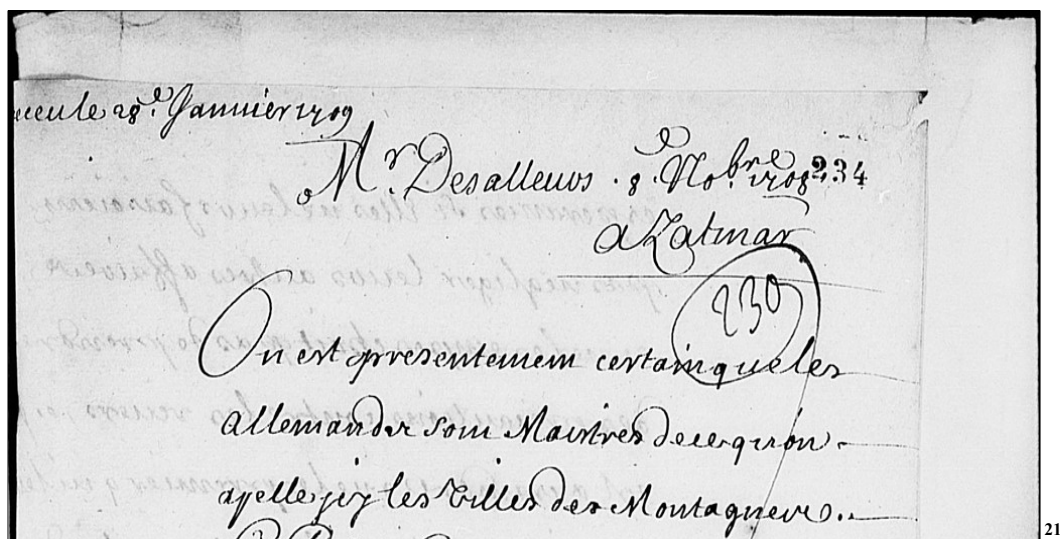 receu le 28.e Janvier 1709
Mr. Desalleurs. 8.e No.bre 1708. 234
a Zatmar
230
On est presentement certain que les
allemandz sont Maistres de ce qu'on
apelle jcy les Villes des Montagnes.
21